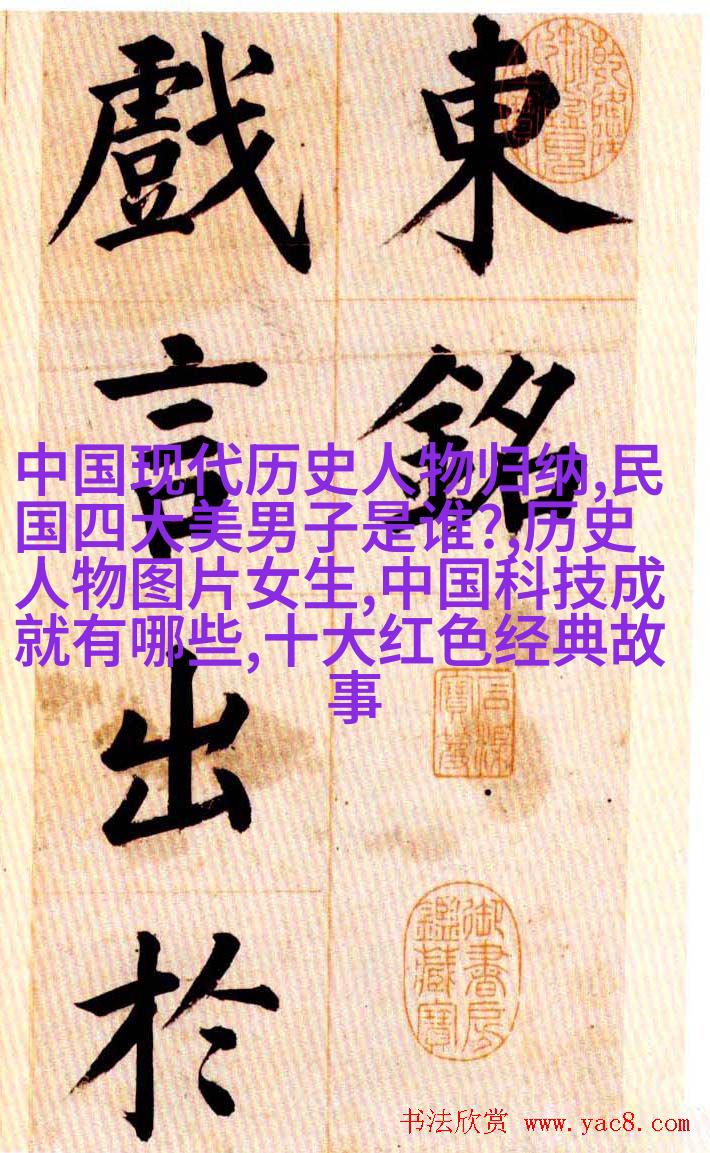 東銘
戲言出於
中国现代历史人物归纳,民
国四大美男子是谁?,历史
人物图片女生,中国科技成
就有哪些,十大红色经典故
事
御書房鑑藏寶
书法欣赏 www.yac8.com